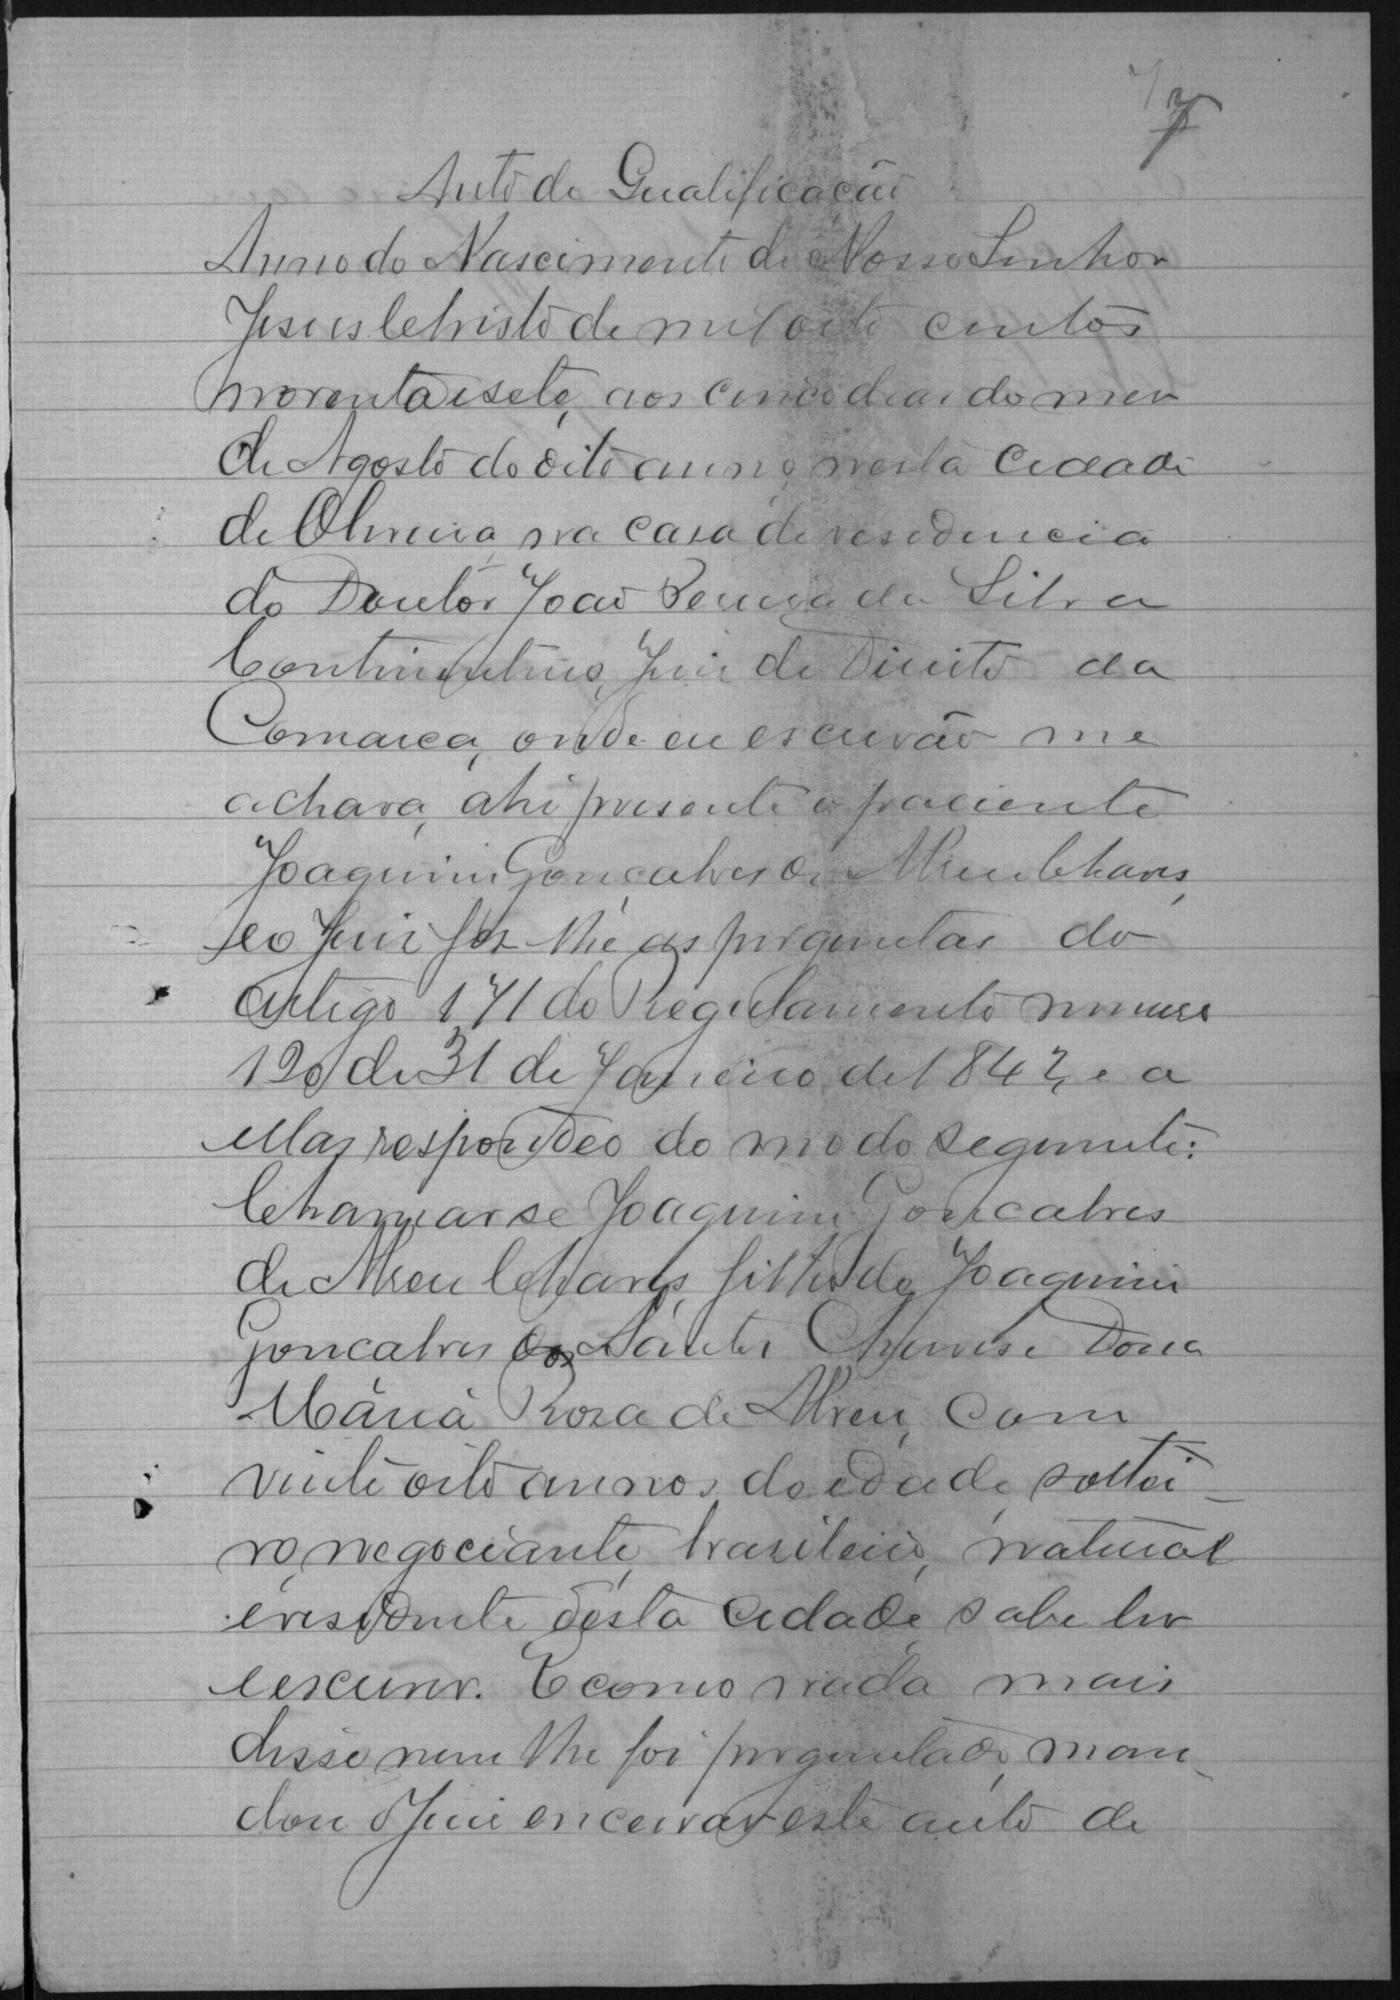 7
Auto de Qualificação
Anno do Nascimento de Nosso Senhor
Jesus Christo de mil oito centos
noventa e sete, aos cinco dias do mez
de Agosto do dito anno, nesta cidade
de Oliveira, na casa de residencia
do Doutor João Pereira da Silva
Continentino, Juiz de Direito da
Comarca, onde eu escrivão me
achava, ahi presente o paciente
Joaquim Gonçalves de Abreu Chaves,
e o Juiz fez-lhe as perguntas do
artigo 171 do Regulamento numero
120 de 31 de Janeiro de 1842, e a
ellas respondeo do modo seguinte:
Chamar se Joaquim Gonçalves
de Abreu Chaves, filho de Joaquim
Goncalves dos Santos Chaves e Dona
Maria Rosa de Abreu, com
vinte oito annos de edade, soltei-
ro, negociante, brasileiro, natural
e residente desta cidade, sabe ler
e escrever. E como nada mais
disse nem lhe foi perguntado, man-
dou o Juiz encerrar este auto de